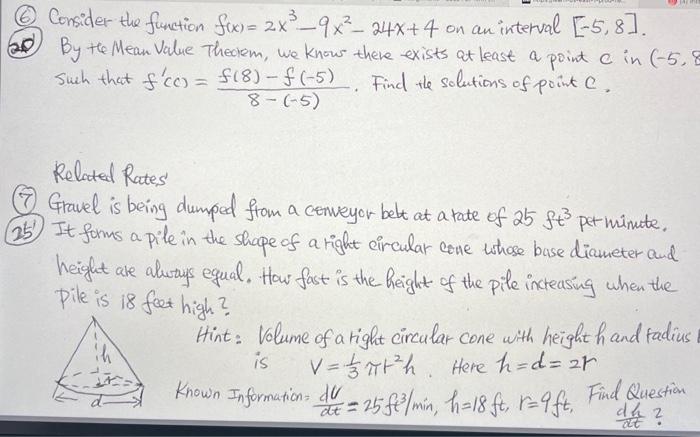 ⑥ Consider the function f(x) = 2x³ – 9x² – 24x + 4 on an interval [-5, 8].
20' By the Mean Value Theorem, we know there exists at least a point c in (-5, 8
Such that f'(c) = f(8) – f(-5) / 8 – (-5) . Find the solutions of point C.
Related Rates
⑦ Gravel is being dumped from a conveyor belt at a rate of 25 ft³ per minute.
25' It forms a pile in the shape of a right circular cone whose base diameter and
height are always equal. How fast is the height of the pile increasing when the
pile is 18 feet high?
Hint: Volume of a right circular cone with height h and radius
is V = 1/3 πr²h. Here h = d = 2r
h
r
d
Known Information: dV/dt = 25 ft³/min, h = 18 ft, r = 9 ft, Find Question
dh/dt ?